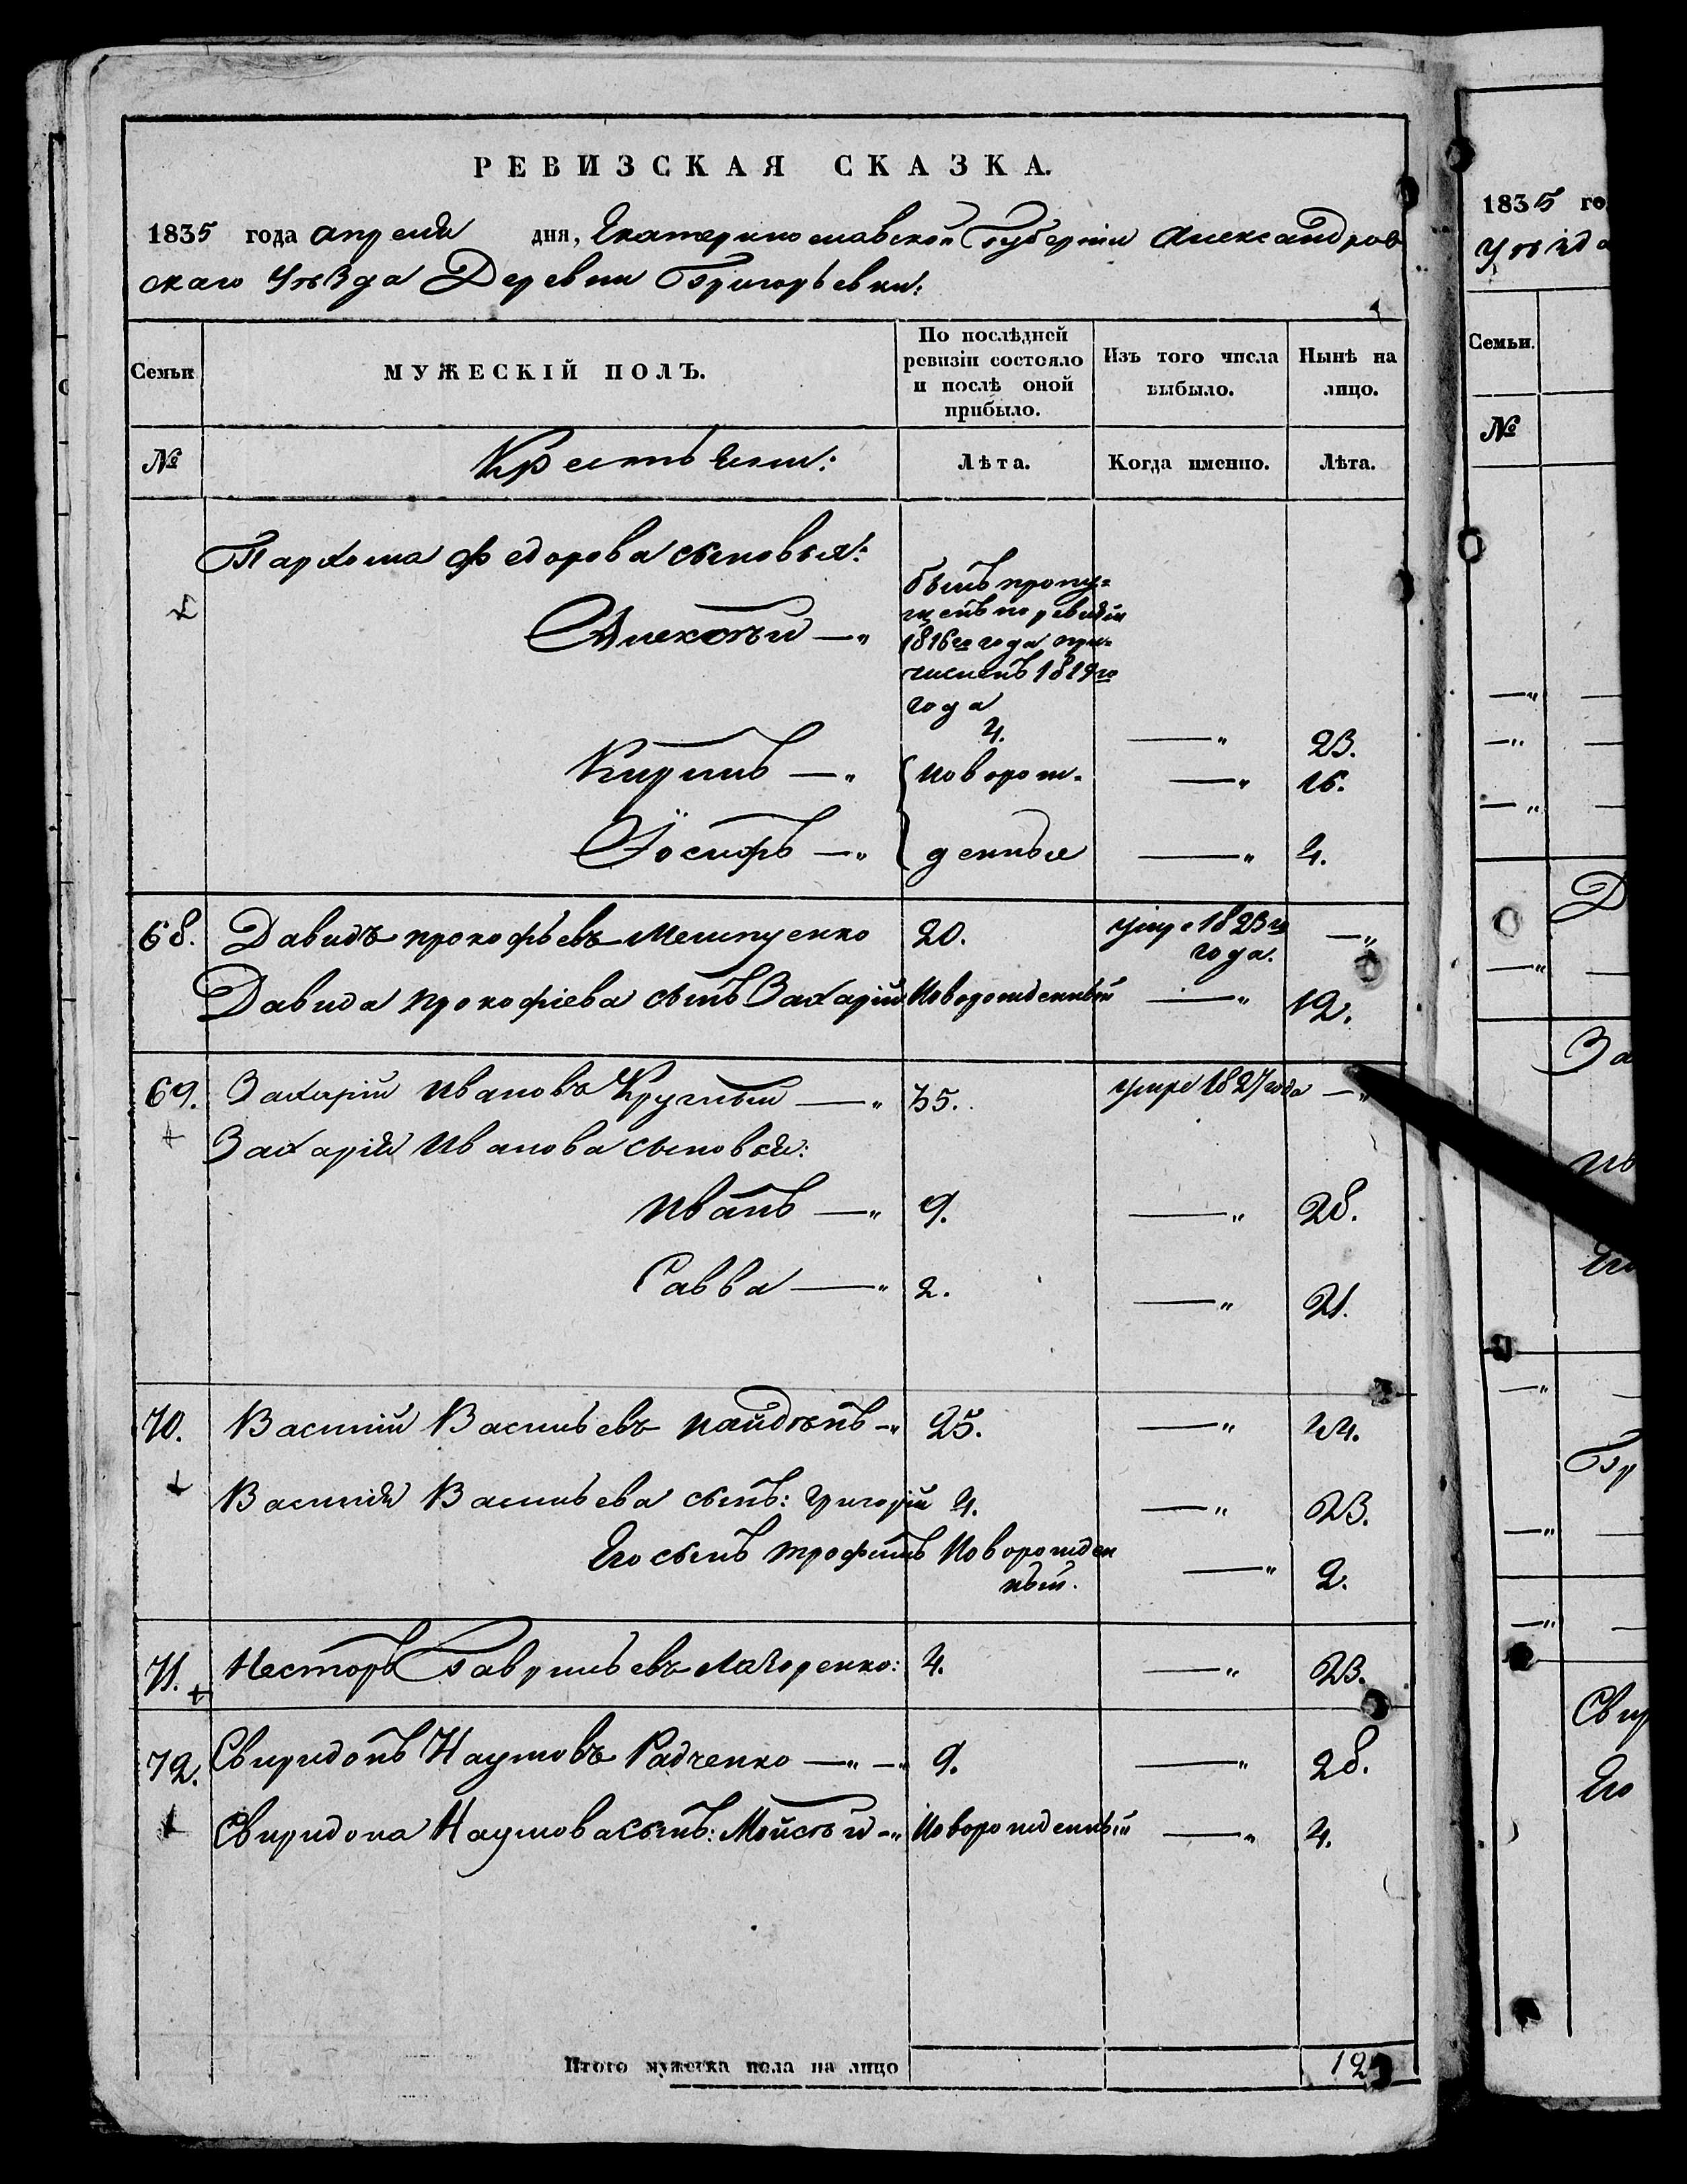 РЕВИЗСКАЯ СКАЗКА.
1835 года апреля дня, Екатеринославской Губернїи Александров
скаго Уѣзда Деревни Григорьевки:
Семьи
МУЖЕСКІЙ ПОЛЪ.
По послѣдней
ревизіи состояло
и послѣ оной
прибыло.
Изъ того числа
выбыло.
Нынѣ на
лицо.
№
Крестьяни:
Лѣта.
Когда именно.
Лѣта.
Пархома Федорова сыновья:
Алексѣй —„
былъ пропу=
щенъ по ревизїи
1816го года при=
численъ 1819го
года
4. —„ 23.
Кирилъ —„ новорож= —„ 16.
Іосифъ —„ денные —„ 4.
68. Давидъ прокофьевъ 20. умре 1823го
года. —„
Давида прокофїева сынъ Захарїй Новорожденный —„ 12.
69. Захарїй Ивановъ Круглый —„ 35. умре 1827 года —„
Захарїя Иванова сыновья:
Иванъ —„ 9. —„ 28.
Савва —„ 2. —„ 21.
70. Василїй Васильевъ Найдѣнъ —„ 25. —„ 44.
Василїя Васильева сынъ: Григорїй 4. —„ 23.
Его сынъ трофимъ Новорожден
ный. —„ 2.
71. Несторъ Гавриловъ 4. —„ 23.
72. Свиридонъ Наумовъ Радченко —„ —„ 9. —„ 28.
Свиридона Наумова сынъ: Мойсѣй —„ Новорожденный —„ 4.
Итого мужеска пола на лицо
12
1835 го
Уѣзда
Семьи.
№
Д
За
Ив
Его
Гр
Сви
Его